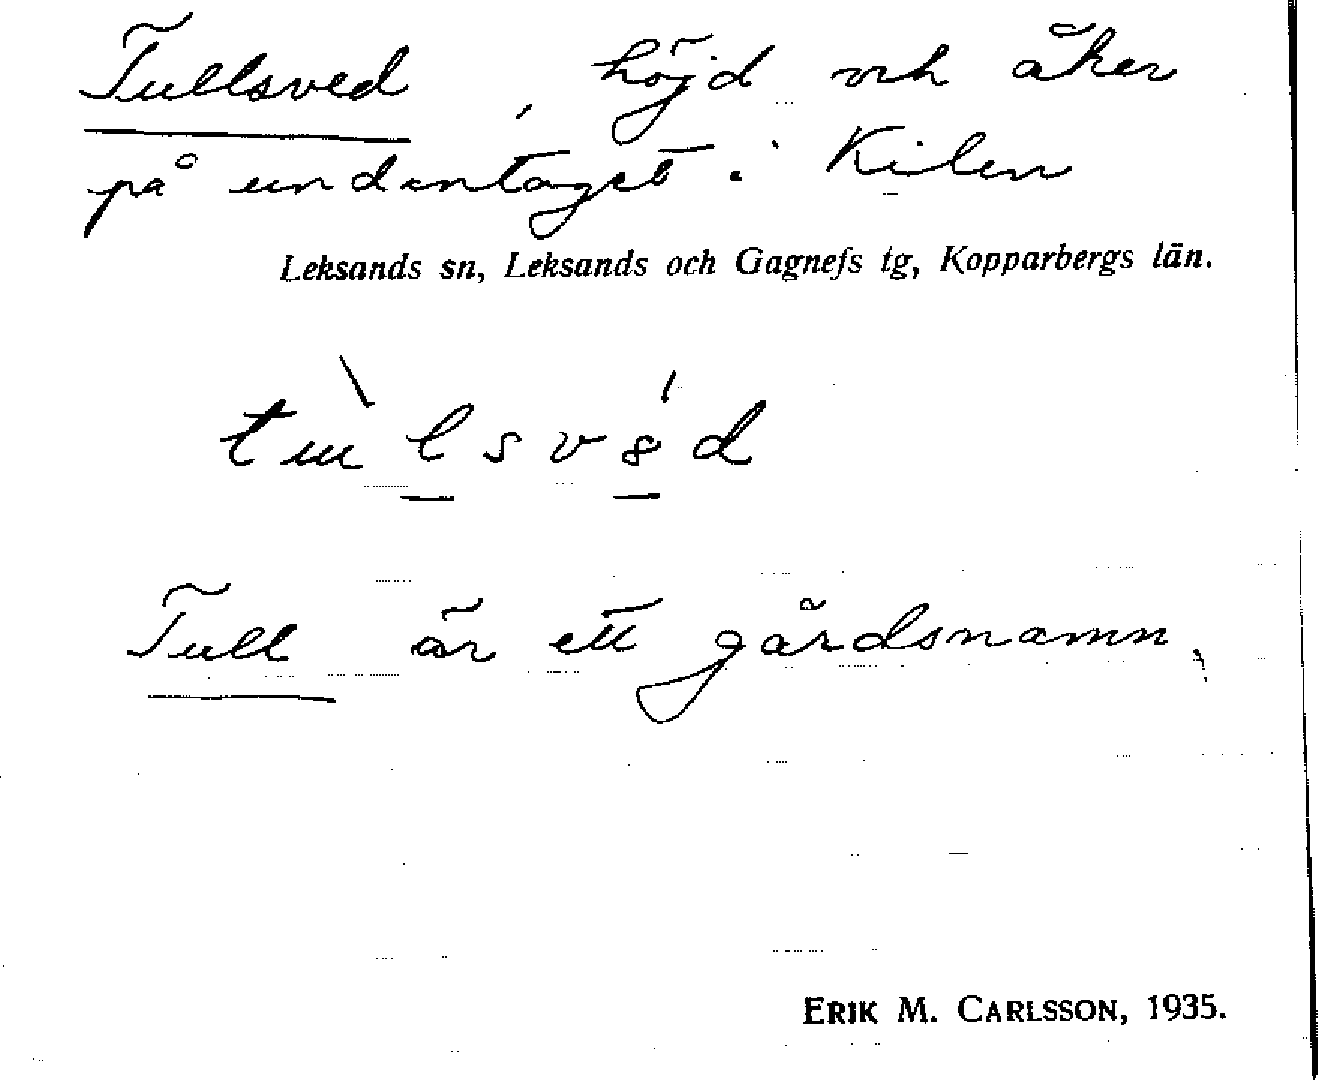 Tullsved, höjd och åker
på undantaget i Kilen
Leksands sn, Leksands och Gagnefs tg, Kopparbergs län.
Tull är ett gårdsnamn.
ERIK M. CARLSSON, 1935.